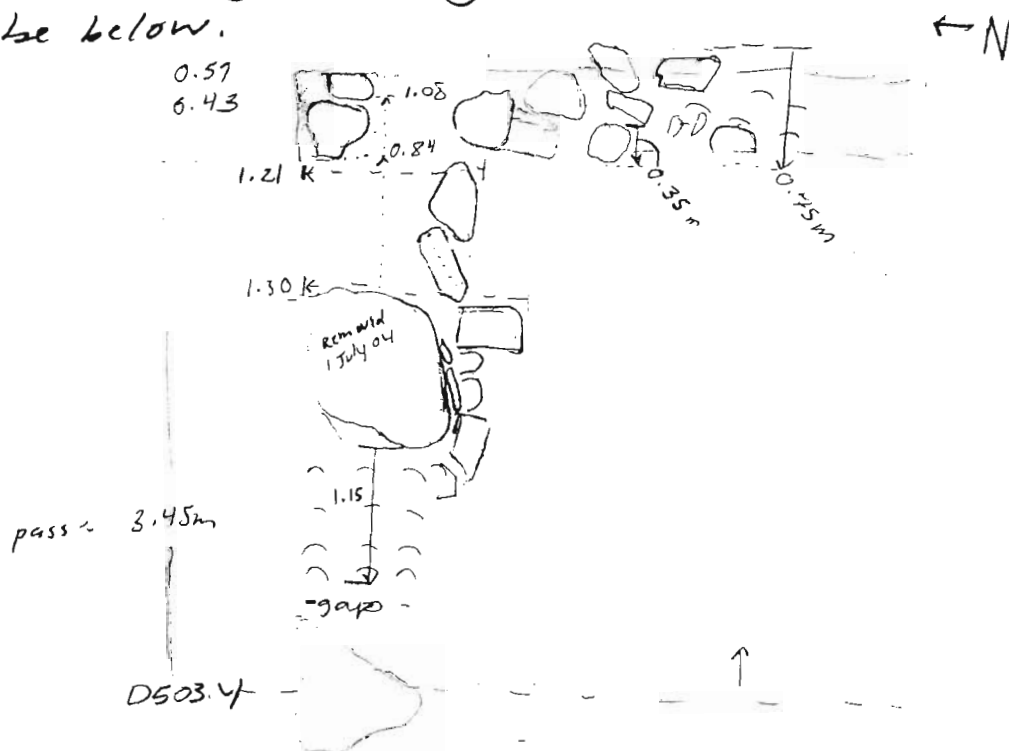 be below.
← N
0.57
0.43
1.08
0.84
1.21
0.35m
0.75m
1.30
Removed
1 July 04
1.15
pass ~ 3.45m
-gap-
D503.